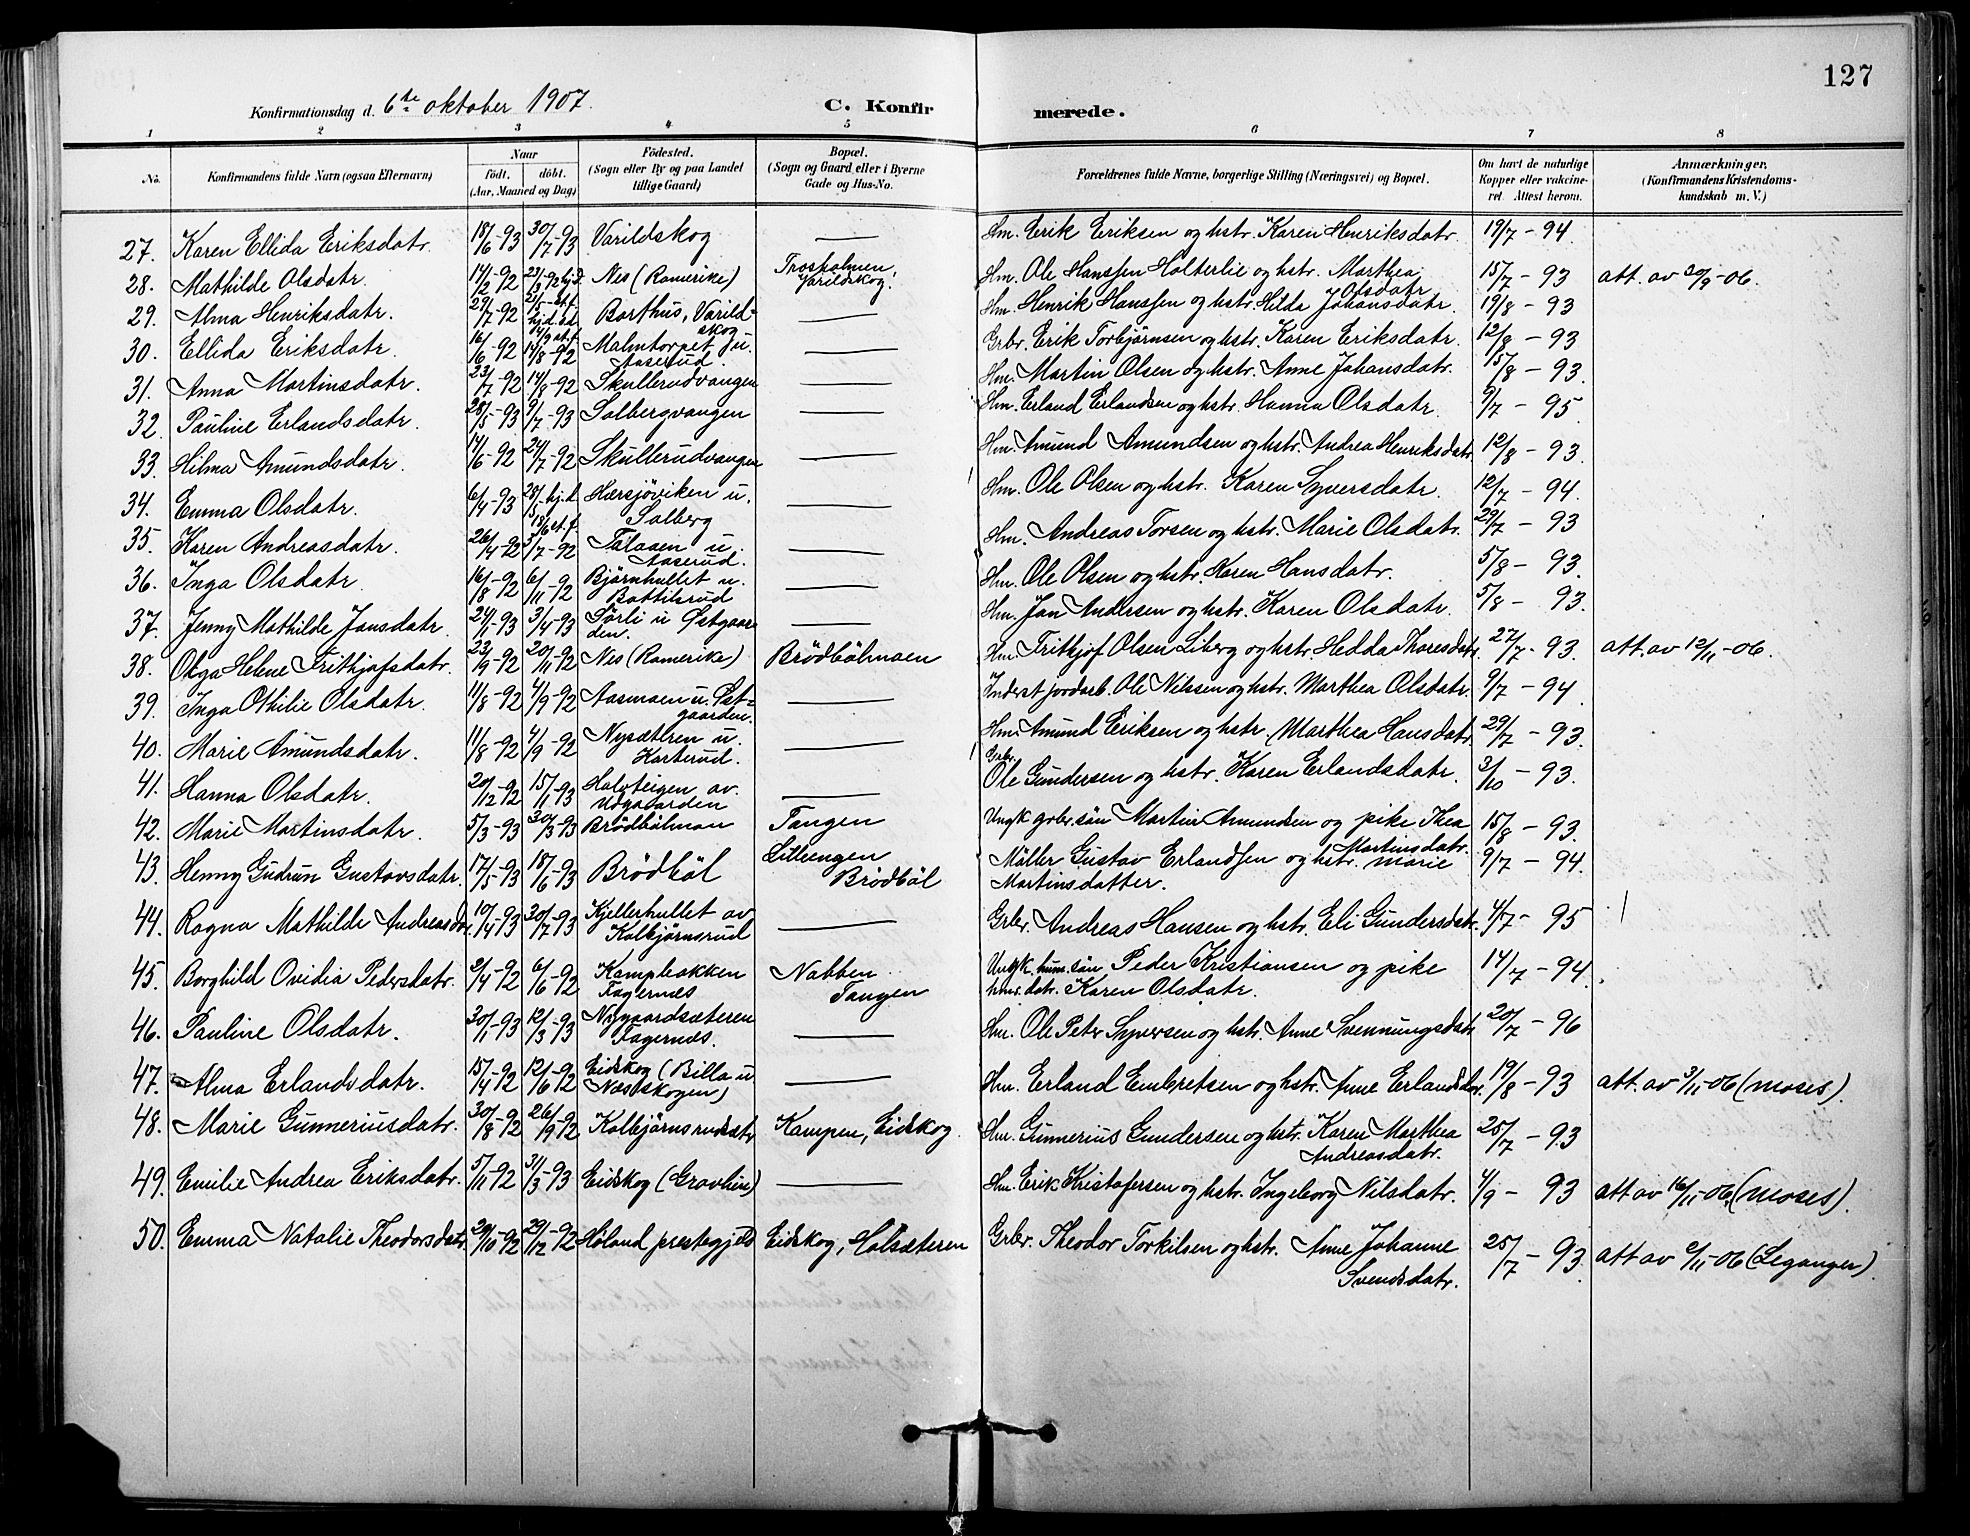 127
Konfirmationsdag d. 6te oktober 1907.
C. Konfirmerede.
1 2 3 4 5 6 7 8
No. Konfirmandens fulde Navn (ogsaa Efternavn) Naar födt. döbt. (Aar, Maaned og Dag) Födested. (Sogn eller By og paa Landet tillige Gaard) Bopæl. (Sogn og Gaard eller i Byerne Gade og Hus-No. Forældrenes fulde Navne, borgerlige Stilling (Næringsvei) og Bopæl. Om havt de naturlige Kopper eller vakcineret. Attest herom. Anmærkninger. (Konfirmandens Kristendomskundskab m. V.)
27. Karen Ellida Eriksdatr. 18/6-93 30/7-93 Varildskog — Hm. Erik Eriksen og hstr. Karen Henriksdatr. 19/7-94.
28. Mathilde Olsdatr. 14/2-92 23/2-92 hjd. 21/5 st.f. Nes (Romerike) Trosholmen, Varildskog. Hm. Ole Hanssen Holterlie og hstr. Marthea Olsdatr. 15/7-93 att. av 20/9-06.
29. Alma Henriksdatr. 29/7-92 hjd. Borthus, Varildskog — Hm. Henrik Hanssen og hstr. Hilda Johansdatr. 19/8-93
30. Ellida Eriksdatr. 16/6-92 14/8-92 Malmtorpet u. Aaserud. — Grbr. Erik Torbjørnsen og hstr. Karen Eriksdatr. 12/8-93
31. Anna Martinsdatr. 23/7-92 14/8-92 Skullerudvangen — Hm. Martin Olsen og hstr. Anne Johansdatr. 15/8-93.
32. Pauline Erlandsdatr. 28/5-93 9/7-93 Solbergvangen — Hm. Erland Erlandsen og hstr. Hanna Olsdatr. 9/7-95.
33. Hilma Amundsdatr. 14/6-92 24/7-92 Skullerudvangen — Hm. Amund Amundsen og hstr. Andrea Henriksdatr. 12/8-93.
34. Emma Olsdatr. 6/4-93 28/5 hj.d. 18/6 st.f. Hærsjöviken u. Solberg — Hm. Ole Olsen og hstr. Karen Syversdatr. 12/7-94.
35. Karen Andreasdatr. 26/4-92 3/7-92 u. Aaserud. — Hm. Andreas Torsen og hstr. Marie Olsdatr. 29/7-93
36. Inga Olsdatr. 16/8-92 6/11-92 Bjørnhullet u. Bottilsrud — Hm. Ole Olsen og hstr. Karen Hansdatr. 5/8-93.
37. Jenny Mathilde Jansdatr. 24/1-93 3/4-93 Sörli u Østgaarden. — Hm. Jan Andersen og hstr. Karen Olsdatr. 5/8-93.
38. Olga Helene Frithjofsdatr. 23/9-92 20/11-92 Nes (Romerike) Brödbölmoen Hm. Fritjof Olsen Liberg og hstr. Hedda Thoresdatr. 27/7-93. att. av 12/11-06.
39. Inga Othilie Olsdatr. 11/8-92 4/9-92 Aasmoen u. Østgaarden. — Inderst jordarb. Ole Nilssen og hstr. Marthea Olsdatr. 9/7-94.
40. Marie Amundsdatr. 11/8-92 4/9-92 Nysætren u. Karterud. — Hm. Amund Eriksen og hstr. Marthea Hansdatr. 29/7-93.
41. Hanna Olsdatr. 20/12-92 15/1-93 Halvteigen av Udgaarden — Grbr. Ole Gundersen og hstr. Karen Erlandsdatr. 3/10-93.
42. Marie Martinsdatr. 5/3-93 30/3-93 Brödbölmoen Tangen Ungk. grbr. sön Martin Amundsen og pike Thea Martinsdatr. 15/8-93.
43. Henny Gudrun Gustavsdatr. 17/5-93 18/6-93 Brödböl Lilleengen Brödböl Möller Gustav Erlandsen og hstr. Marie Martinsdatter. 9/7-94.
44. Ragna Mathilde Andreasdr. 10/4-93 30/7-93 Kjellerhullet av Kolbjørnsrud — Grbr. Andreas Hansen og hstr. Eli Gundersdatr. 4/7-95
45. Borghild Ovidia Pedersdatr. 2/4-92 6/6-92 Kampbakken Fagernæs Nabben Tangen Ungk. hum. sön Peder Kristiansen og pike hmr. datr. Karen Olsdatr. 14/7-94.
46. Pauline Olsdatr. 30/1-93 12/3-93 Nygaardsæteren Fagernæs. — Hm. Ole Peter Syversen og hstr. Anne Svenningsdatr. 20/7-96
47. Alma Erlandsdatr. 15/4-92 12/6-92 Eidskog (Billa u Næstskogen) — Hm. Erland Embretsen og hstr. Anne Erlandsdr. 19/8-93 att. av 3/11-06 (Moses).
48. Marie Gunneriusdatr. 30/8-92 26/9-92 Kolbjørnsrudsætr Kampen, Eidskog. Hm. Gunnerius Gundersen og hstr. Karen Marthea Andreasdatr. 25/7-93
49. Emilie Andrea Eriksdatr. 5/11-92 31/3-93 Eidskog (Gravlien) — Hm. Erik Kristofersen og hstr. Ingeborg Nilsdatr. 4/9-93 att av 16/11-06 (Moses).
50. Emma Natalie Theodorsdatr. 20/10-92 29/12-92 Høland prestegjeld Eidskog, Holsæteren Grbr. Theodor Torkilsen og hstr. Anne Johanne Svendsdatr. 25/7-93. att av 9/11-06 (Leganger)